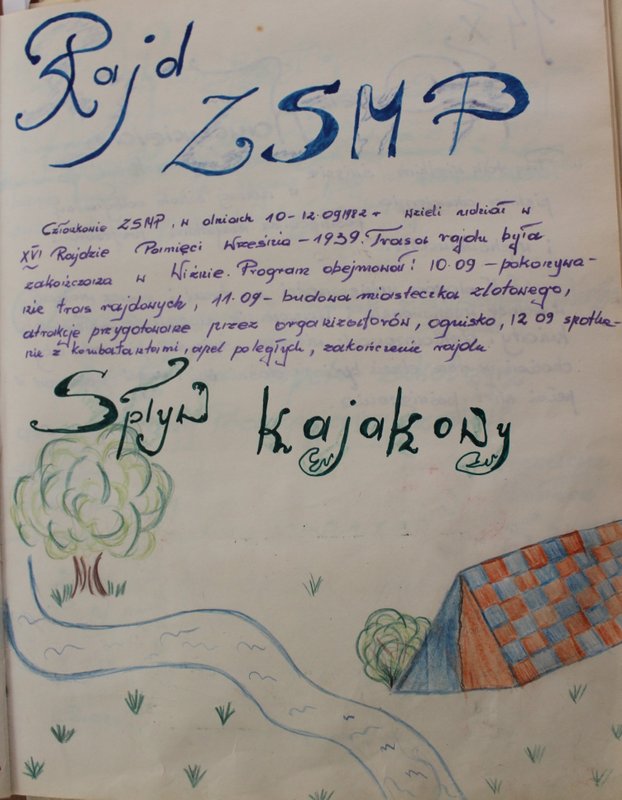 Rajd
ZSMP
Członkowie ZSMP, w dniach 10-12.09.1982 r wzieli udział w
XVI Rajdzie Pamięci Wrzesień - 1939. Trasa rajdu była
zakończona w Wiźnie. Program obejmował: 10.09 - pokonywa-
nie tras rajdowych, 11.09 - budowa miasteczka zlotowego,
atrakcje przygotowane przez organizatorów, ognisko, 12 09 spotka-
nie z kombatantami, apel poległych, zakończenie rajdu
Spływ kajakowy